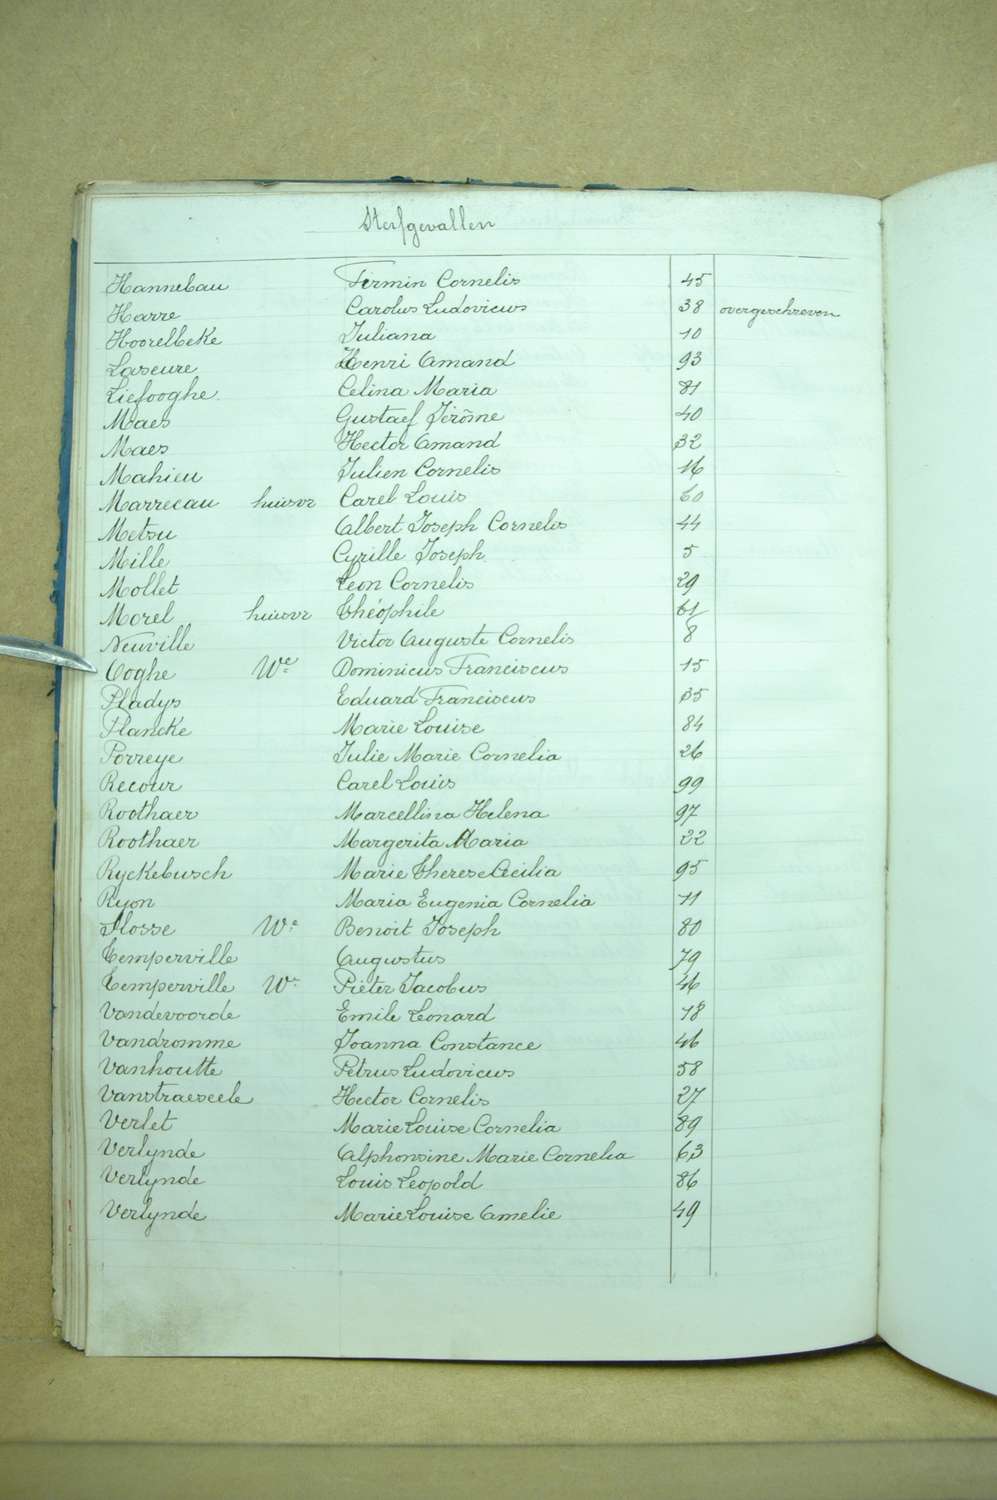 Sterfgevallen
Hannebau Firmin Cornelis 45
Harre Carolus Ludovicus 38 overgeschreven
Hoorelbeke Juliana 10
Laseure Henri Amand 93
Liefooghe Celina Maria 81
Maes Gustaef Jérôme 40
Maes Hector Amand 32
Mahieu Julien Cornelis 16
Marrecau huisvr Carel Louis 60
Metsu Albert Joseph Cornelis 44
Mille Cyrille Joseph 5
Mollet Leon Cornelis 29
Morel huisvr Théophile 61
Neuville Victor Auguste Cornelis 8
Ooghe We Dominicus Franciscus 15
Pladys Eduard Franciscus 35
Plancke Marie Louise 84
Porreye Julie Marie Cornelia 26
Recour Carel Louis 99
Roothaer Marcellina Helena 97
Roothaer Margerita Maria 22
Ryckebusch Marie Therese Cecilia 95
Ryon Maria Eugenia Cornelia 11
Slosse We Benoit Joseph 80
Temperville Augustus 79
Temperville We Pieter Jacobus 46
Vandevoorde Emile Leonard 18
Vandromme Joanna Constance 46
Vanhoutte Petrus Ludovicus 58
Vanstraeseele Hector Cornelis 27
Verlet Marie Louise Cornelia 89
Verlynde Alphonsine Marie Cornelia 63
Verlynde Louis Leopold 86
Verlynde Marie Louise Amelie 49